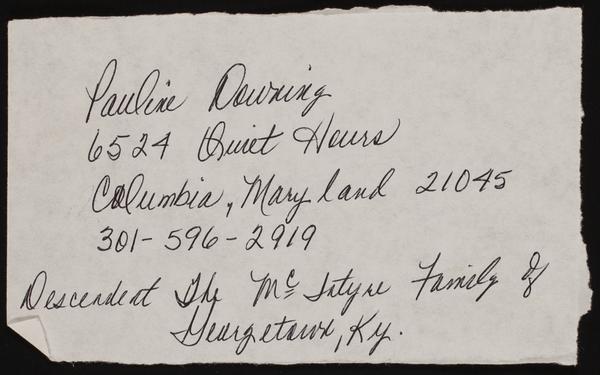 Pauline Downing
6524 Quiet Hours
Columbia, Maryland 21045
301-596-2919
Descendent The McIntyre Family of
Georgetown, Ky.